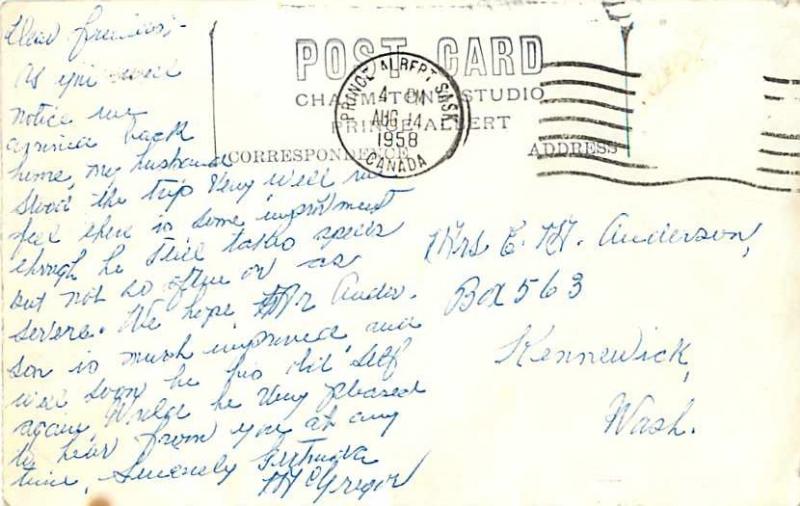 Dear friends;-
As you will
notice we
arrived back
home, my husband
stood the trip very well we
feel there is some improvment
though he still takes spells
but not so often or as
severe. We hope Mr Ander-
son is much improved and
will soon be his old self
again. Would be very pleased
to hear from you at any
time, Sincerely Gertrude
McGregor
POST CARD
CHARMTONE STUDIO
PRINCE ALBERT
CORRESPONDENCE ADDRESS
PRINCE ALBERT, SASK.
4 PM
AUG 14
1958
CANADA
Mrs E. M. Anderson,
Box 563
Kennewick,
Wash.